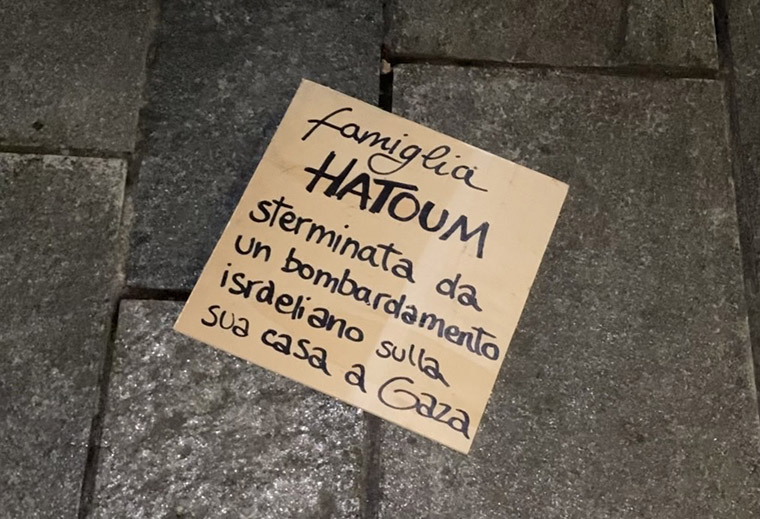 famiglia
HATOUM
sterminata da
un bombardamento
israeliano sulla
sua casa a Gaza